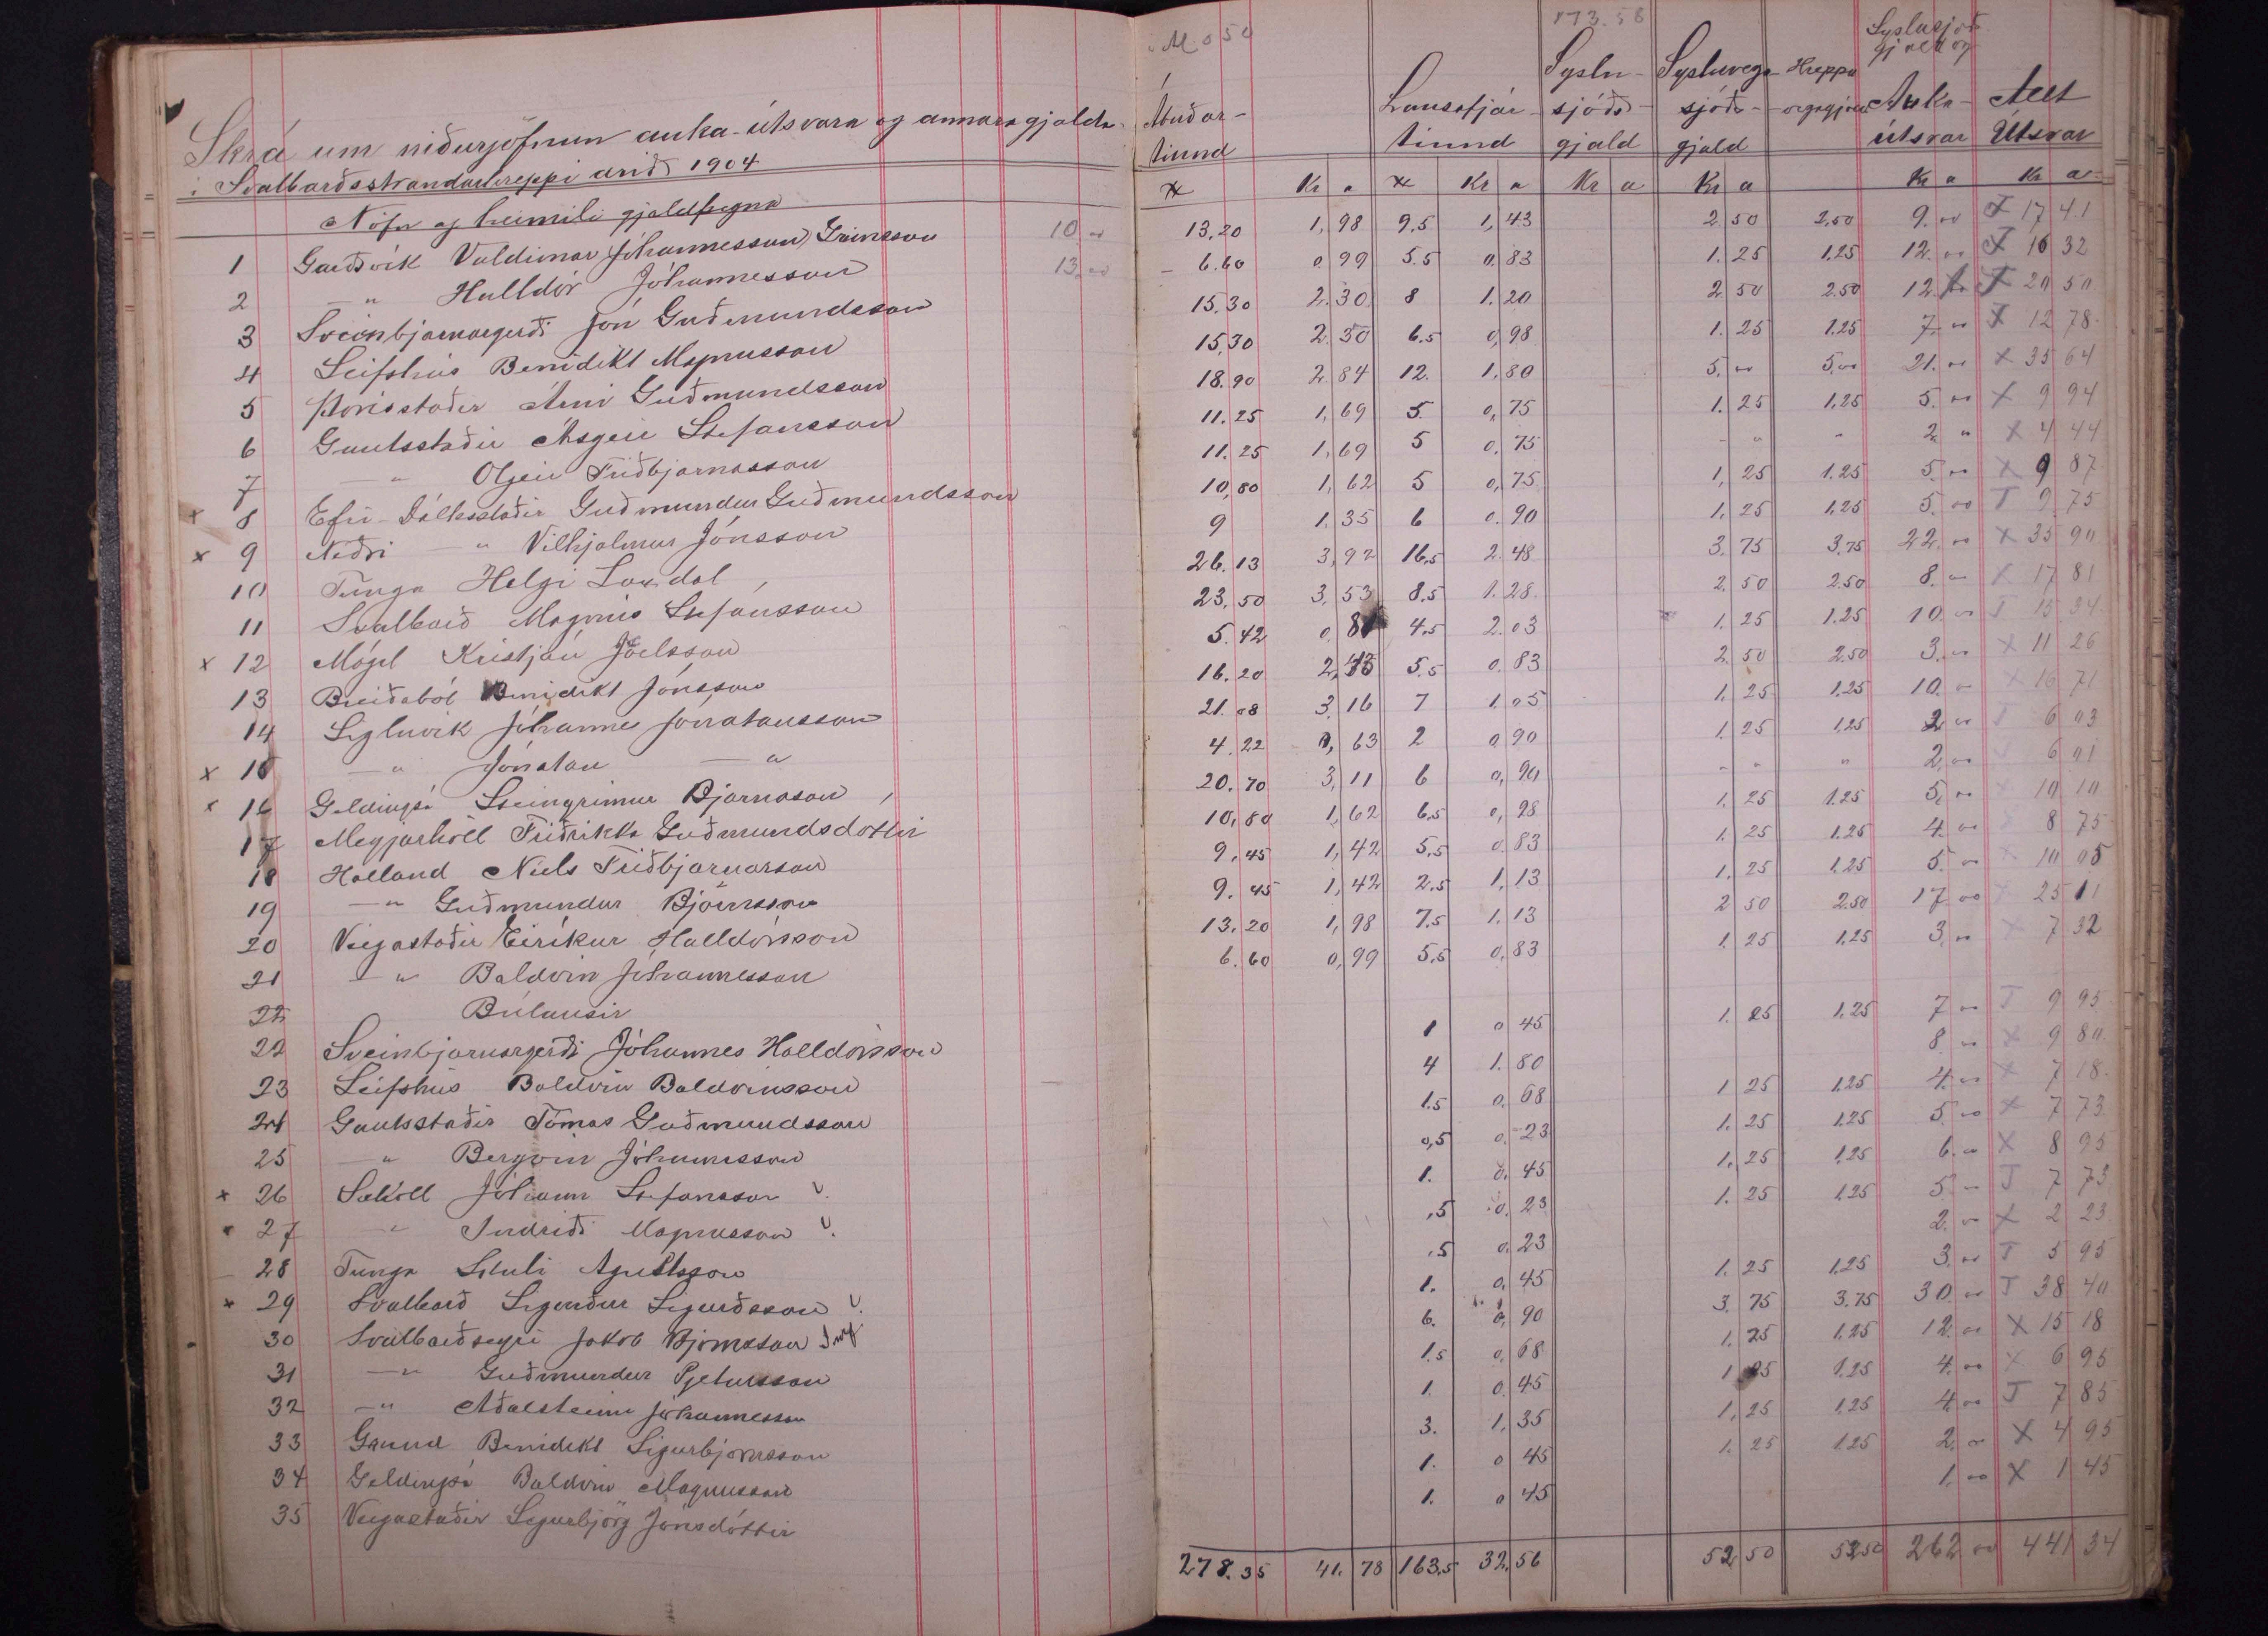 Skrá um niðurjöfnun auka-útsvara og annara gjalda
í Svalbarðsstrandarhreppi árið 1904
Nöfn og heimili gjaldþegna
1 Garðsvík Valdimar (Jóhannesson) Grímsson 10 "
2 —"— Halldór Jóhannesson 13 "
3 Sveinbjarnargerði Jón Guðmundsson
4 Leifshús Benidikt Magnusson
5 Þórisstaðir Árni Guðmundsson
6 Gautsstaðir Ásgeir Stefansson
7 —"— Olgeir Friðbjarnarson
× 8 Efri-Dálksstaðir Guðmundur Guðmundsson
× 9 Neðri —"— Vilhjalmur Jónsson
10 Tunga Helgi Laxdal
11 Svalbarð Magnús Stefánsson
× 12 Mógil Kristján Jóelsson
13 Breiðaból Benidikt Jónsson
14 Sigluvík Jóhannes Jónatansson
× 15 —"— Jónatan —"—
× 16 Geldingsá Steingrimur Bjarnason
17 Meyjarhóll Friðrikka Guðmundsdóttir
18 Halland Niels Friðbjarnarson
19 —"— Guðmundur Björnsson
20 Veigastaðir Eiríkur Halldórsson
21 —"— Baldvin Jóhannesson
Búlausir
22 Sveinbjarnargerði Jóhannes Halldórsson
23 Leifshús Baldvin Baldvinsson
24 Gautsstaðir Tómas Guðmundsson
25 —"— Bergvin Jóhannesson
× 26 Sæhóll Jóhann Stefansson v.
27 —"— Indriði Magnusson v.
28 Tunga Skuli Agustsson
× 29 Svalbarð Sigurður Sigurðsson v.
30 Svalbarðseyri Jakob Björnsson
31 —"— Guðmundur Pjetursson
32 —"— Aðalsteinn Jóhannesson
33 Grund Benidikt Sigurbjörnsson
34 Geldingsá Baldvin Magnusson
35 Veigastaðir Sigurbjörg Jónsdóttir
173.58
Ábúðar-tiund
Lausafjár-tiund
Syslu-sjóðs-gjald
Sysluvega-sjóðs-gjald
Hreppsvegagjald
Syslusjóðs gjald og
Auka-útsvar
Allt Útsvar
Kr a Kr a Kr a Kr a Kr a Kr a
13,20 1,98 9,5 1,43 2 50 2,50 9. 17 41
6.60 0,99 5.5 0.83 1.25 1,25 12. 16 32
15,30 2.30 8 1.20 2 50 2.50 12 20 50
15,30 2.30 6.5 0,98 1.25 1.25 7. 12 78
18.90 2.84 12. 1.80 5. 5, 21. × 35 64
11.25 1,69 5. 0,75 1.25 1,25 5. × 9 94
11.25 1,69 5 0.75 " " 2 " × 4 44
10,80 1,62 5 0,75 1,25 1.25 5. × 9 87
9 1.35 6 0.90 1.25 1,25 5. 9 75
26.13 3,92 16,5 2.48 3.75 3,75 22. × 35 90
23,50 3,53 8.5 1.28 2.50 2.50 8. × 17 81
5.42 0.81 4,5 2.03 1.25 1.25 10. 15 34
16.20 2,43 5.5 0.83 2.50 2.50 3. × 11 26
21.08 3.16 7 1.05 1.25 1,25 10. × 16 71
4.22 0,63 2 0,90 1.25 1,25 2 6 03
20.70 3,11 6 0,90 " " 2, 6 01
10,80 1,62 6,5 0,98 1.25 1.25 5, 10 10
9,45 1,42 5,5 0.83 1.25 1.25 4. 8 75
9.45 1,42 2,5 1,13 1.25 1.25 5. 10 05
13,20 1,98 7.5 1.13 2 50 2.50 17 25 11
6.60 0,99 5,5 0,83 1.25 1,25 3, 7 32
1 0 45 1.25 1,25 7 9 95
4 1.80 8 × 9 80
1.5 0.68 1 25 1,25 4. × 7 18
0,5 0.23 1.25 1.25 5. × 7 73
1. 0.45 1.25 1,25 6. × 8 95
,5 0.23 1.25 1,25 5 7 73
,5 0.23 2. × 2 23
1. 0,45 1.25 1,25 3. 5 95
6. 0,90 3.75 3.75 30. 38 40
1.5 0,68 1.25 1,25 12. × 15 18
1. 0.45 1 25 1,25 4. × 6 95
3. 1,35 1,25 1,25 4. 7 85
1. 0 45 1.25 1,25 2, × 4 95
1. 0 45 1. × 1 45
278.35 41.78 163.5 32,56 52 50 52 50 262 441 34